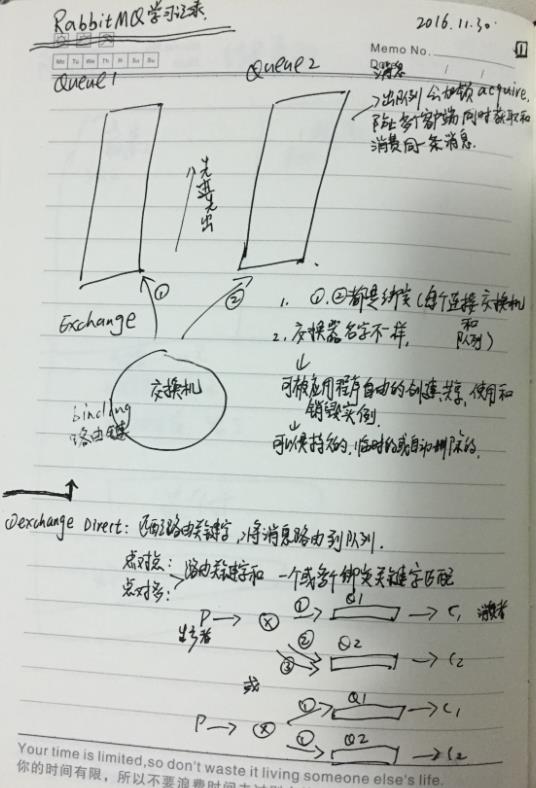 RabbitMQ学习记录.
2016.11.30.
Memo No.
1
Mo Tu We Th Fr Sa Su
Date / /
Queue 1
Queue 2
消息
出队列会加锁 acquire,
防止多个客户端同时获取和
消费同一条消息.
先进先出
① ②
Exchange
1. ①.②都是绑定(每个连接交换机
和
队列)
2. 交换器名字不一样,
交换机
binding
路由键
可被应用程序自由的创建,共享,使用和
销毁实例.
可以使持久的,临时的或自动删除的.
①exchange Direct: 匹配路由关键字,将消息路由到队列.
点对点:
点对多:
路由关键字和 一个或多个绑定关键字匹配
P → X ① → Q1 → C1 消费者
生产者
② Q2
③ → C2
或
P → X ① → Q1 → C1
① Q2 → C2
Your time is limited,so don't waste it living someone else's life.
你的时间有限，所以不要浪费时间去过别